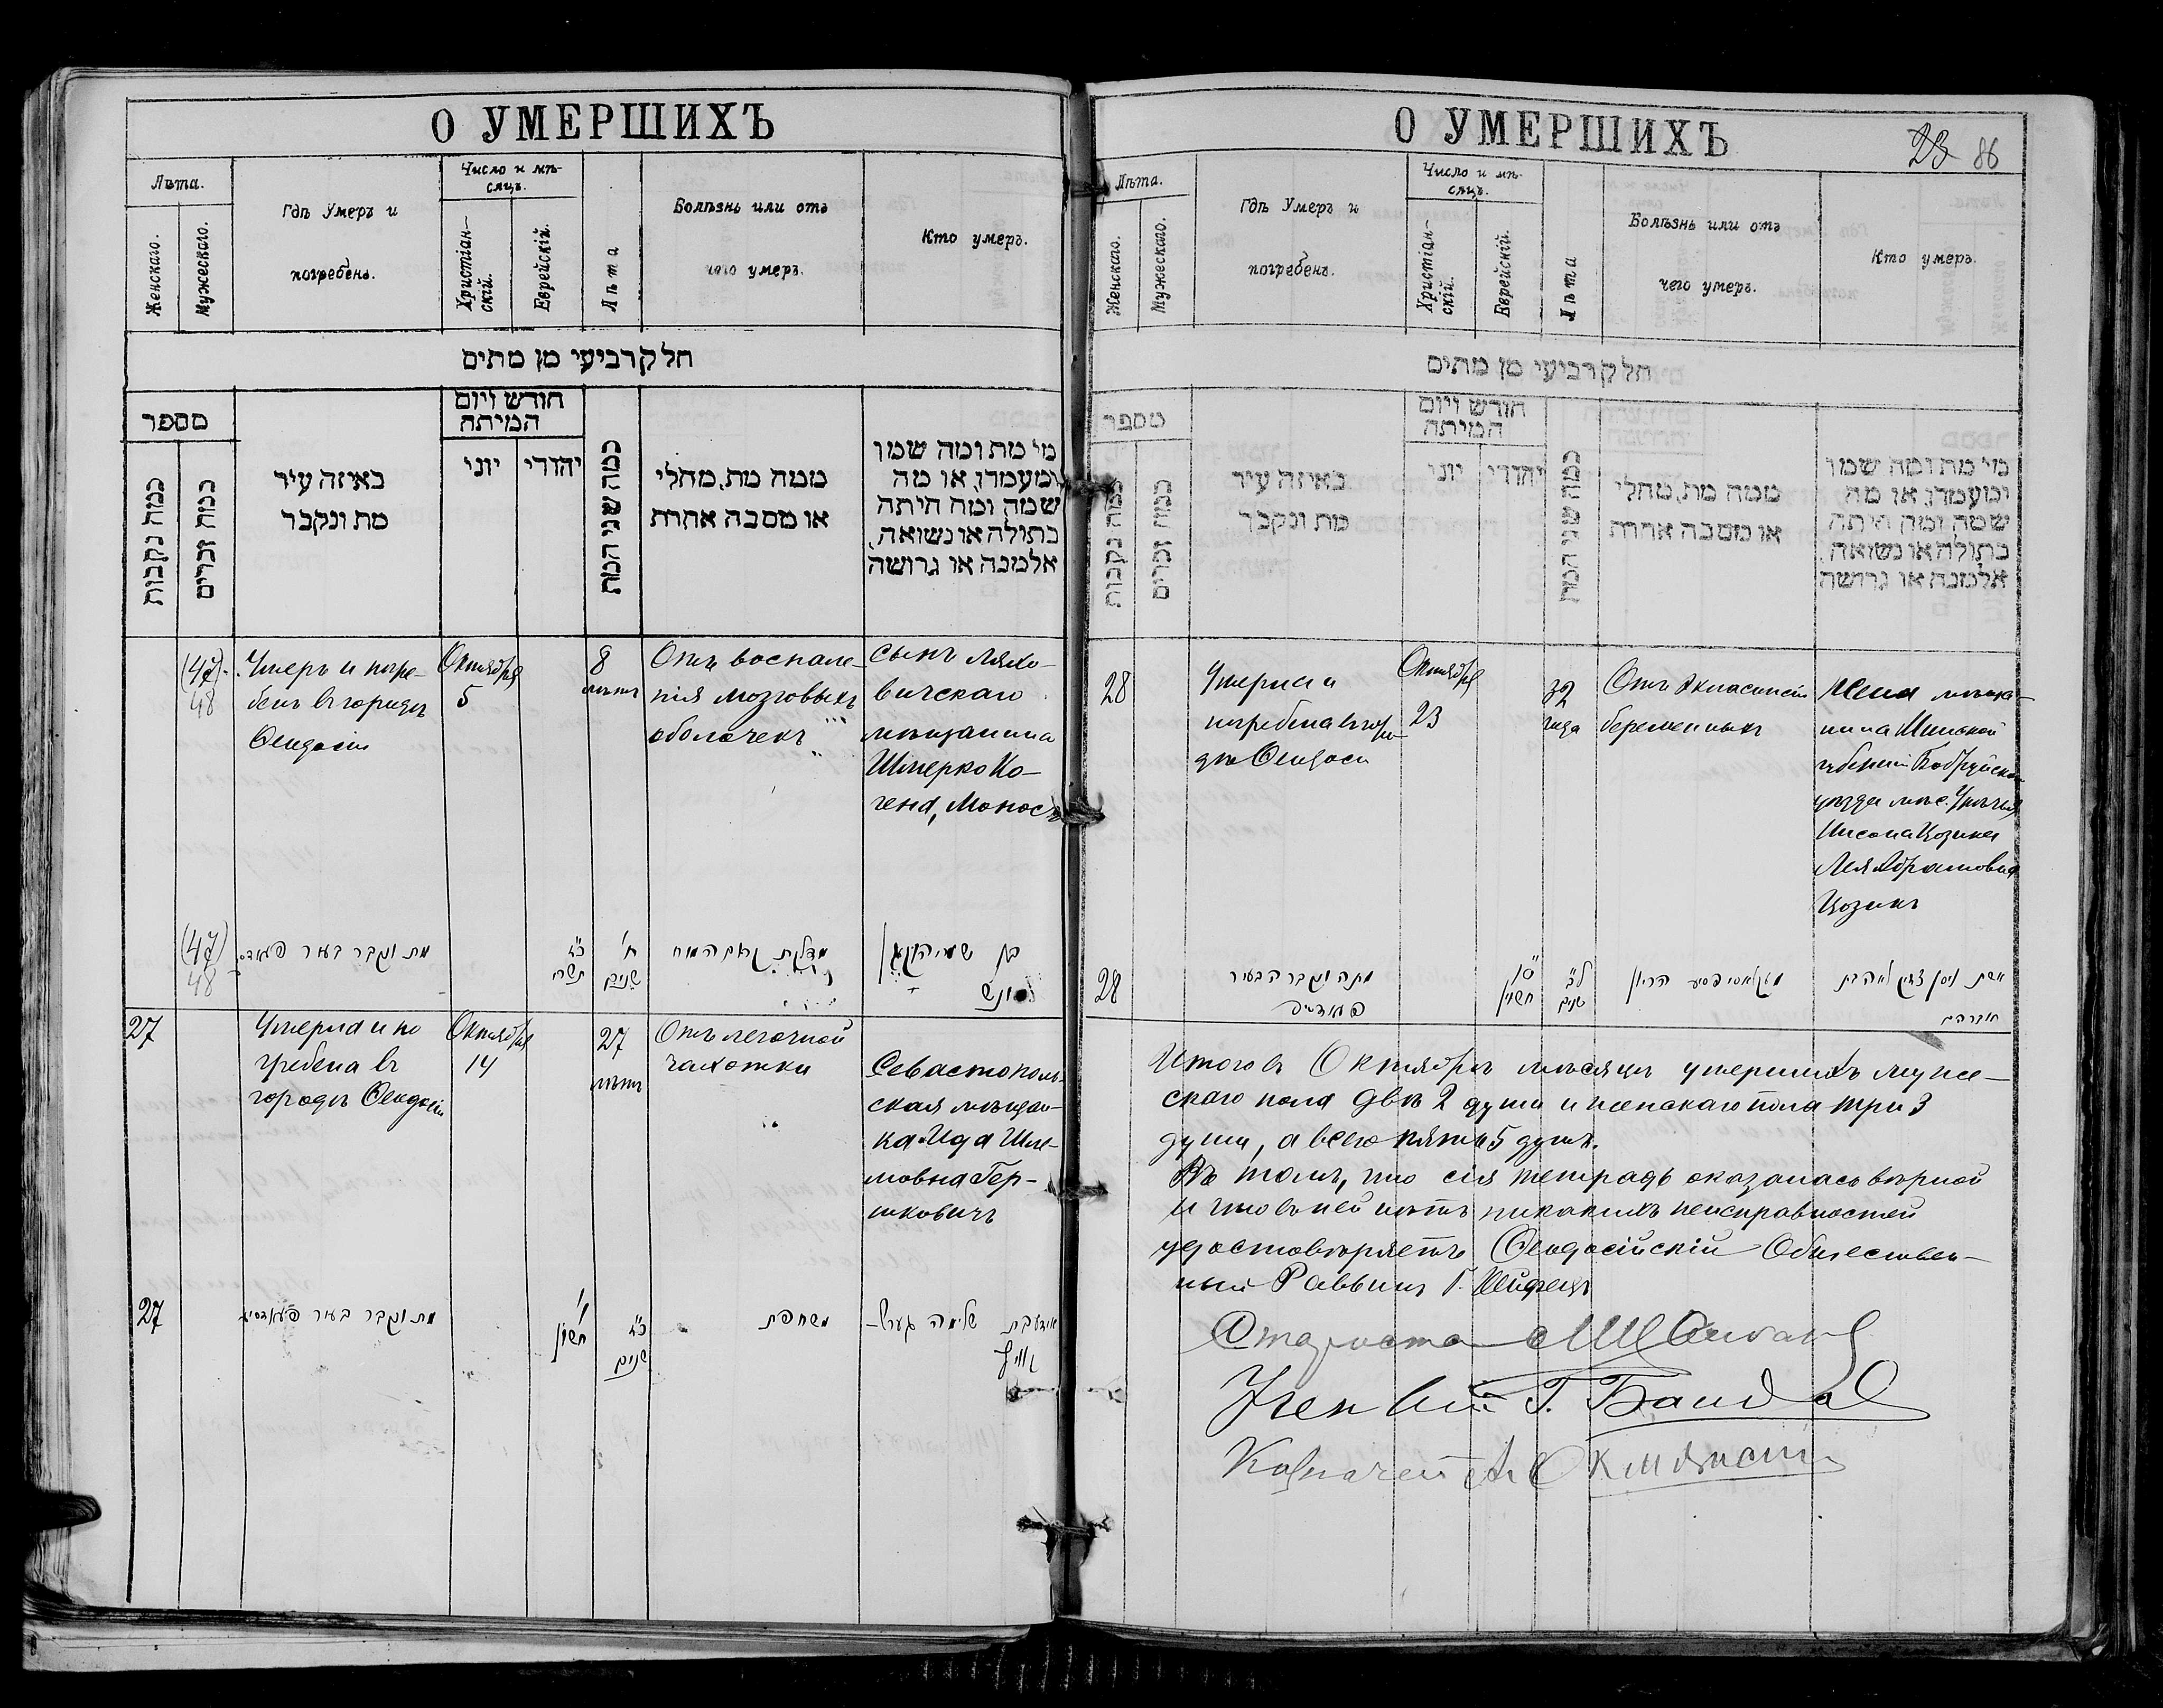 О УМЕРШИХЪ
Лѣта.
Женскаго.
Мужескаго.
Гдѣ Умеръ и
погребенъ.
Число и мѣ-
сяцъ.
Христіан-
скій.
Еврейскій.
Лѣта
Болѣзнь или отъ
чего умеръ.
Кто умеръ.
חלק רביעי מן מתים
מספר
כמה נקבות
כמה זכרים
באיזה עיר
מת ונקבר
חודש ויום
המיתה
יוני
יהודי
כמה שני המת
ממה מת, מחלי
או מסבה אחרת
מי מת ומה שמו
ומעמדו, או מה
שמה ומה היתה
בתולה או נשואה,
אלמנה או גרושה
(47)
48
Умеръ и погре-
бенъ въ городѣ
Ѳеодосіи
Октября
5
8
лѣтъ
Отъ воспале-
нія мозговыхъ
оболочекъ
сынъ Ляхо-
вичскаго
мѣщанина
Шмерко Ко-
гена, Моносъ
(47)
48
מת ונקבר בעיר
תשרי
ח'
שנים
מדלקת קרום המוח
בן
27
Умерла и по
гребена въ
городѣ Ѳеодосіи
Октября
14
27
лѣтъ
Отъ легочной
чахотки
Севастополь-
ская мѣщан-
ка Ида Шле-
мовна Гер-
шковичъ
27
מת ונקבר בעיר פעאדסיע
חשון
שנים
משחפת
שלמה
О УМЕРШИХЪ
23 86
Лѣта.
Женскаго.
Мужескаго.
Гдѣ Умеръ и
погребенъ.
Число и мѣ-
сяцъ.
Христіан-
скій.
Еврейскій.
Лѣта
Болѣзнь или отъ
чего умеръ.
Кто умеръ.
חלק רביעי מן מתים
מספר
כמה נקבות
כמה זכרים
באיזה עיר
מת ונקבר
חודש ויום
המיתה
יוני
יהודי
כמה שני המת
ממה מת, מחלי
או מסבה אחרת
מי מת ומה שמו
ומעמדו, או מה
שמה ומה היתה
בתולה או נשואה,
אלמנה או גרושה
28
Умерла и
погребена въ горо-
дѣ Ѳеодосіи
Октября
23
32
года
Отъ Эклампсіи
беременныхъ
Жена мѣща-
нина Минской
губерніи Бобруйскаго
уѣзда мѣс.
Нисона Цозика
Лея Абрамовна
Цозикъ
28
מתה ונקברה בעיר
חשון
ל"ב
שנים
הריון
אשת ניסן
אברהם
Итого въ Октябрѣ мѣсяцѣ умершихъ муже-
скаго пола двѣ 2 души и женскаго пола три 3
души, а всего пять 5 душъ.
Въ томъ, что сія тетрадь оказалась вѣрной
и что въ ней нѣтъ никакихъ неисправностей
удостовѣряетъ Ѳеодосійскій Обществен-
ный Раввинъ Г. Шейфецъ
Староста
Ученый Г.
Казначей А.